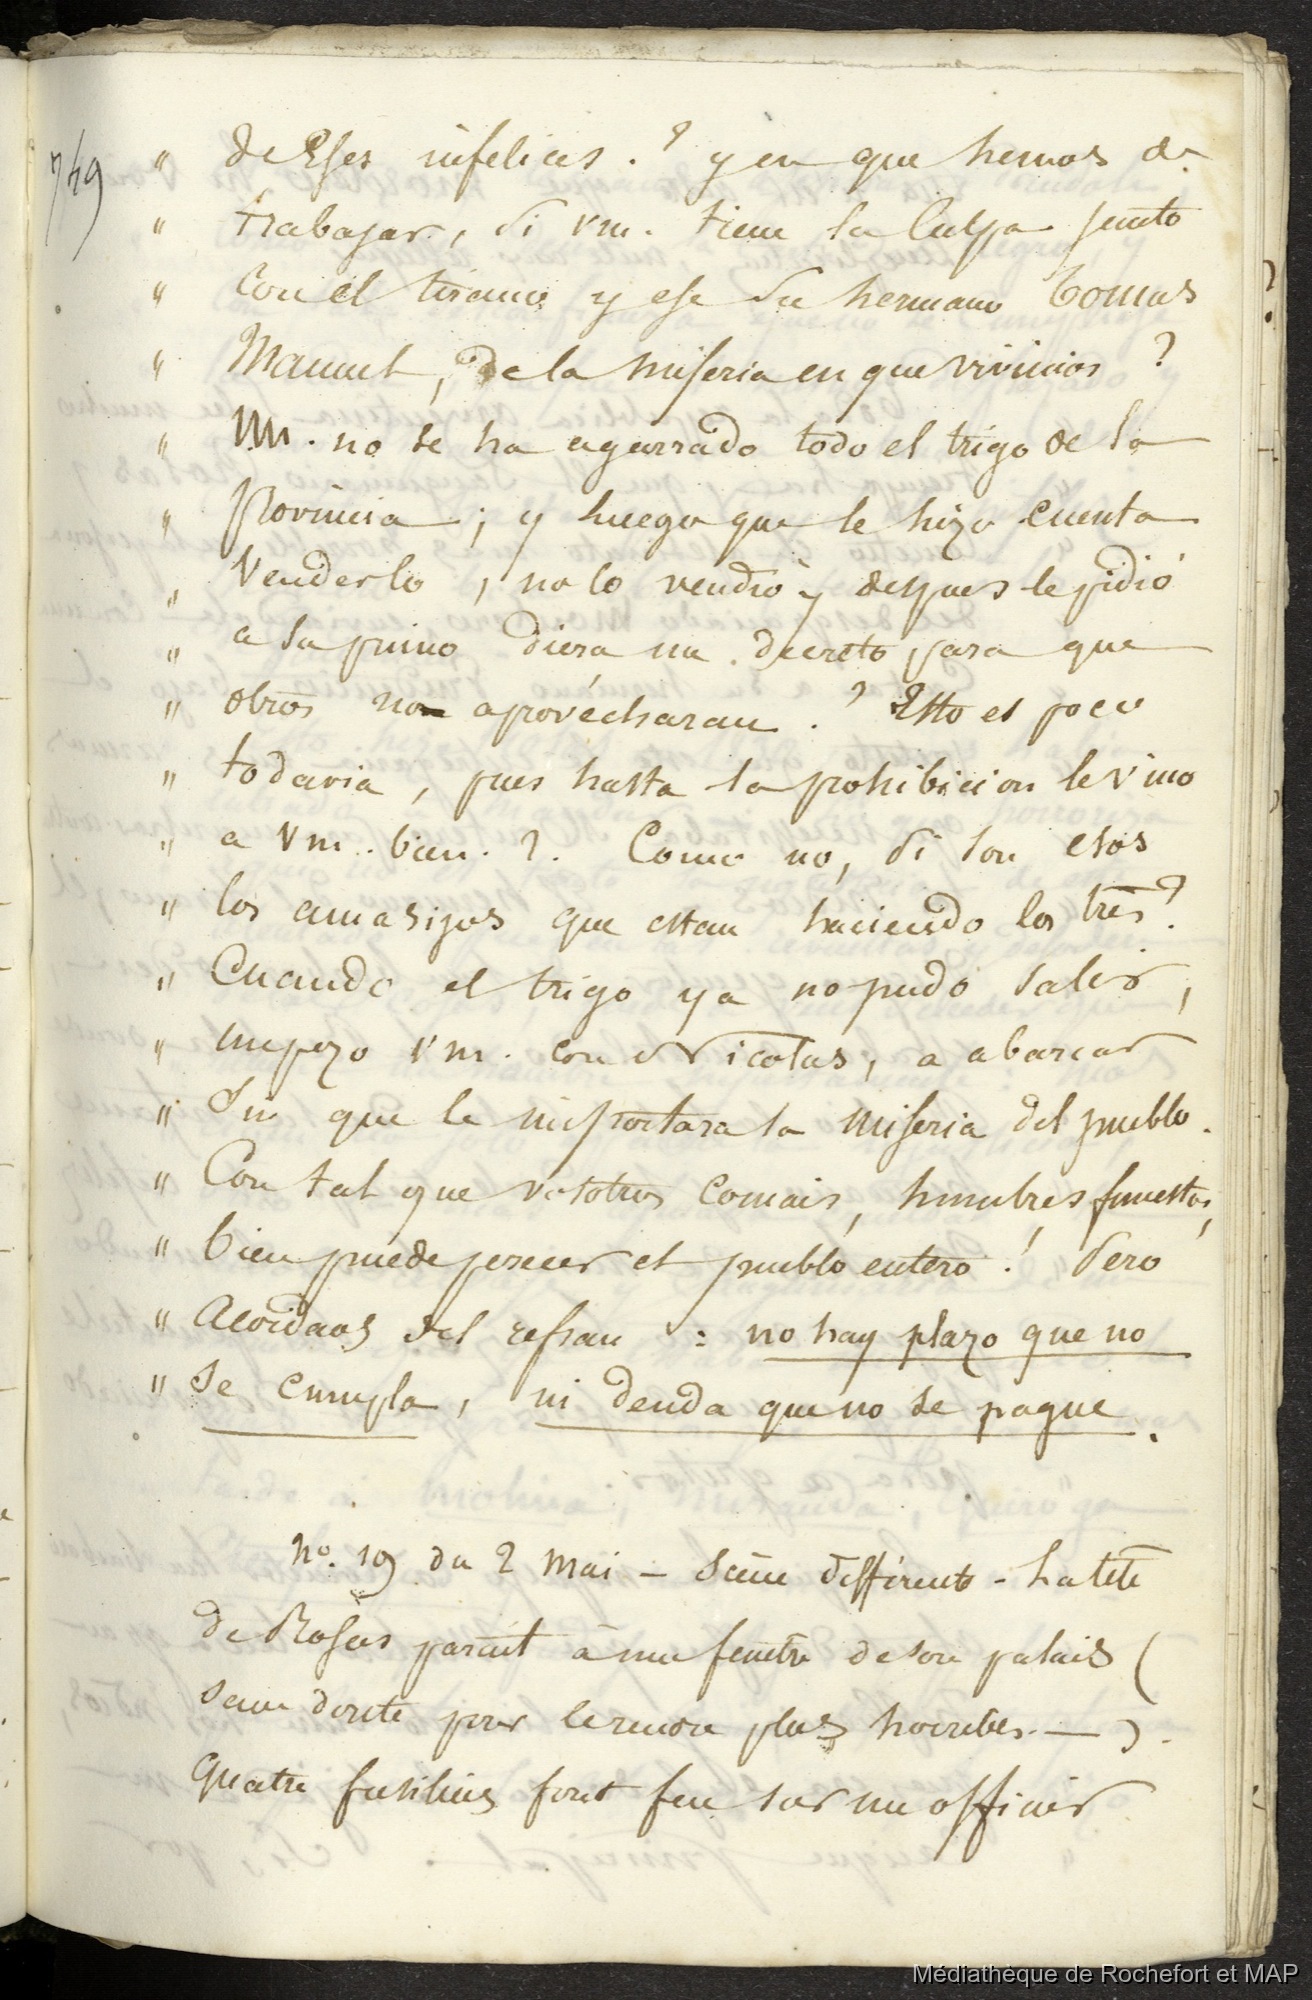 749
" de Eses infelices . ? y en que hemos de
" trabajar, si Vm. tiene la culpa junto
" con el tirano y ese su hermano Tomas
" Manuel, de la miseria en que vivimos ?
" Vm. no se ha agarrado todo el trigo de la
" provincia ; y luego que le hizo cuenta
" Venderlo , no lo vendió y despues le pidió
" a su primo diera un decreto para que
" otros no aprovécharan . ? Esto es poco
" todavia , pues hasta la prohibicion le vino
" a Vm. bien . ? . Como no, si son esos
" los amasijos que estan haciendo los tres ?
" Cuando el trigo ya no pudo salir ,
" empezo Vm. con Nicolas, a abarcar
" Sin que le importara la miseria del pueblo .
" Con tal que vosotros comais , hombres funestos,
" bien puede perecer el pueblo entero . ! Pero
" Acordaos del refran : no hay plazo que no
" se cumpla , ni deuda que no se pague .
No. 19 du 2 Mai – Scène différente – La tête
de Rosas parait à une fenêtre de son palais (
sans doute pour le rendre plus horrible. — ) .
Quatre fusiliers font feu sur un officier
Médiathèque de Rochefort et MAP